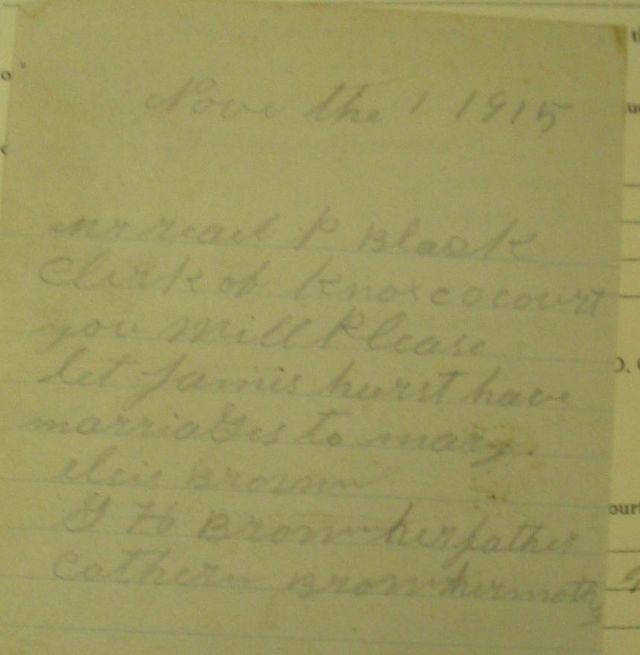 Nove the 1 1915
mr read P Black
Clerk of Knox co court
you Will Please
let James hurst have
marriages to mary
elsie Brown
G H Brown her father
Cathern Brown her mother